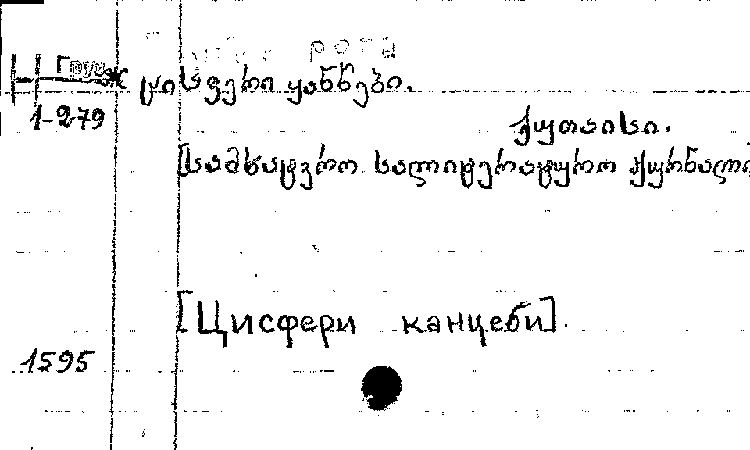 рога
Груз ж ცისფერი ყანწები.
1-279
ქუთაისი.
[სამხატვრო სალიტერატურო ჟურნალი
[Цисфери канцеби].
1595